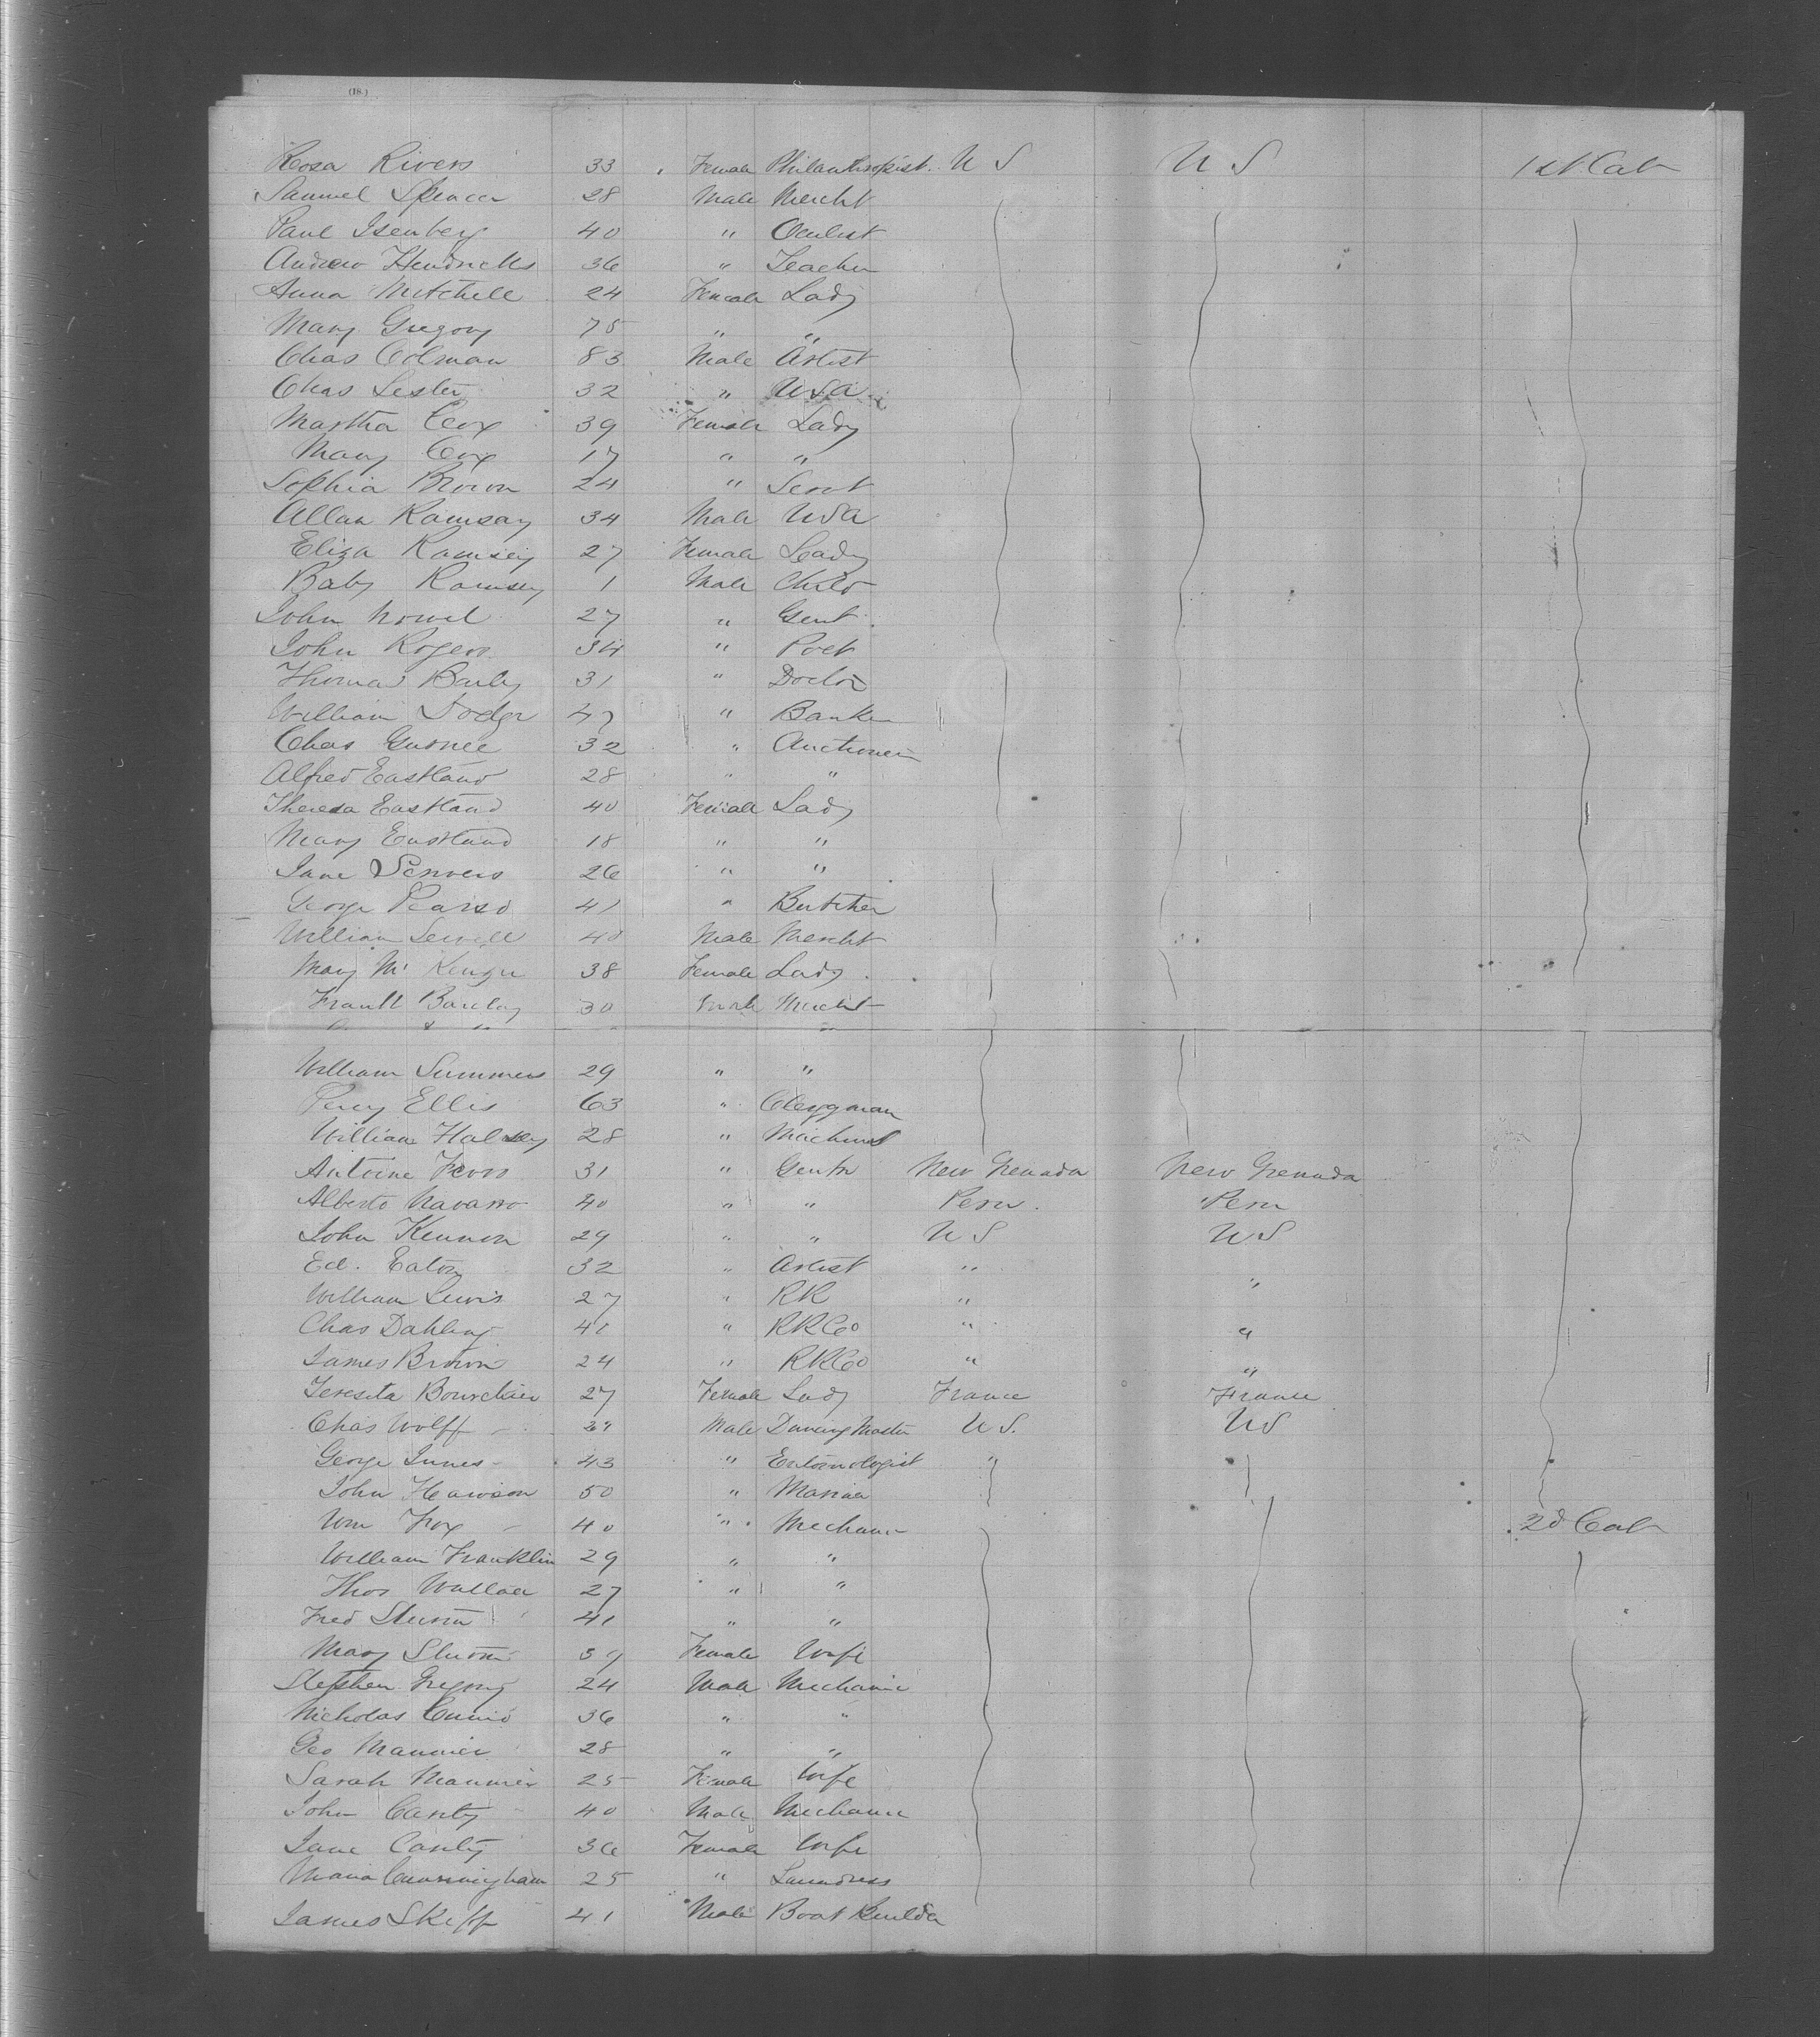 (18.)
Rosa Rivers 33 Female Philanthropist U S U S 1st Cab
Samuel Spencer 28 Male Mercht
Paul Isenberg 40 " Oculist
Andrew Hendricks 36 " Teacher
Anna Mitchell 24 Female Lady
Mary Gregory 75 " "
Chas Colman 83 Male Artist
Chas Lester 32 " USA
Martha Cox 39 Female Lady
Mary Cox 17 " "
Sophia Brown 24 " Servt
Allan Ramsay 34 Male USA
Eliza Ramsey 27 Female Lady
Baby Ramsey 1 Male Child
John Nowel 27 " Gent
John Rogers 34 " Poet
Thomas Baily 31 " Doctor
William Dodge 47 " Banker
Chas Gurnee 32 " Auctioneer
Alfred Eastland 28 " "
Theresa Eastland 40 Female Lady
Mary Eastland 18 " "
Jane 26 " "
George 41 " Butcher
William Sewell 40 Male Mercht
Mary Mc Kenzie 38 Female Lady
Frank Barclay 30 Male Mercht
William Summers 29 " "
Percy Ellis 63 " Clergyman
William Halsey 28 " Machinist
Antoine 31 " Gentn New Grenada New Grenada
Alberto Navarro 40 " " Peru Peru
John Kennon 29 " " U S U S
Ed. Eaton 32 " Artist " "
William Lewis 27 " RR " "
Chas Dahling 41 " RRCo " "
James Brown 24 " RRCo " "
Teresita Bourchier 27 Female Lady France France
Chas Wolff 29 Male Dancing Master U S. U S
George Innes 43 " Entomologist "
John Hawison 50 " Mariner
Wm Fox 40 " Mechanic 2d Cab
William Franklin 29 " "
Thos Wallace 27 " "
Fred Sturm 41 " "
Mary Sturm 39 Female Wife
Stephen Gregory 24 Male Mechanic
Nicholas 36 " "
Geo Maunier 28 " "
Sarah Maunier 25 Female Wife
John Canty 40 Male Mechanic
Jane Canty 36 Female Wife
Maria Cunningham 25 " Laundress
James Skiff 41 Male Boat Builder